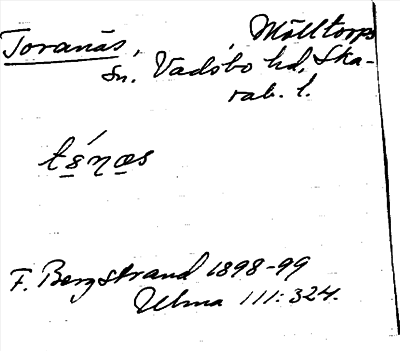 Toranäs, Mölltorps
sn. Vadsbo hd, Ska-
rab. l.
F. Bergstrand 1898-99
Ulma 111:324.